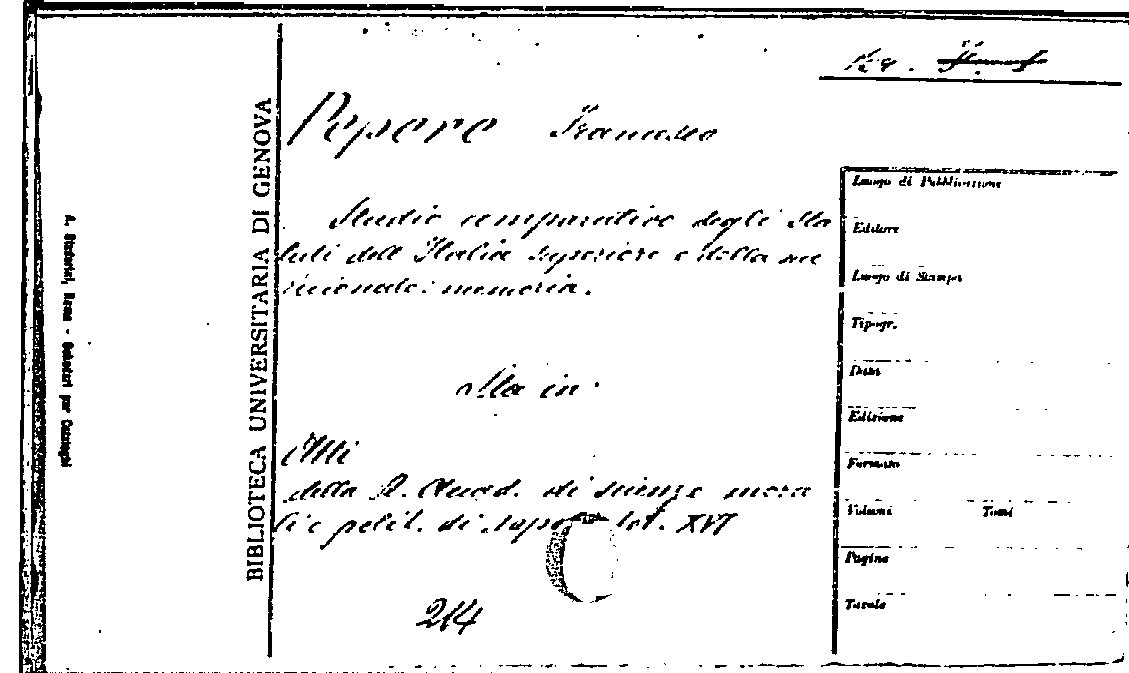 Pepere Francesco
Studio comparativo degli Sta
tuti dell'Italia superiore e della me
ridionale: memoria.
Sta in
Atti
della R. Accad. di scienze mora
li e polit. di Napoli Vol. XVI
214
BIBLIOTECA UNIVERSITARIA DI GENOVA
A. Staderini, Roma - Schedari per Cataloghi
Luogo di Pubblicazione
Editore
Luogo di Stampa
Tipogr.
Data
Edizione
Formato
Volumi Tomi
Pagine
Tavole